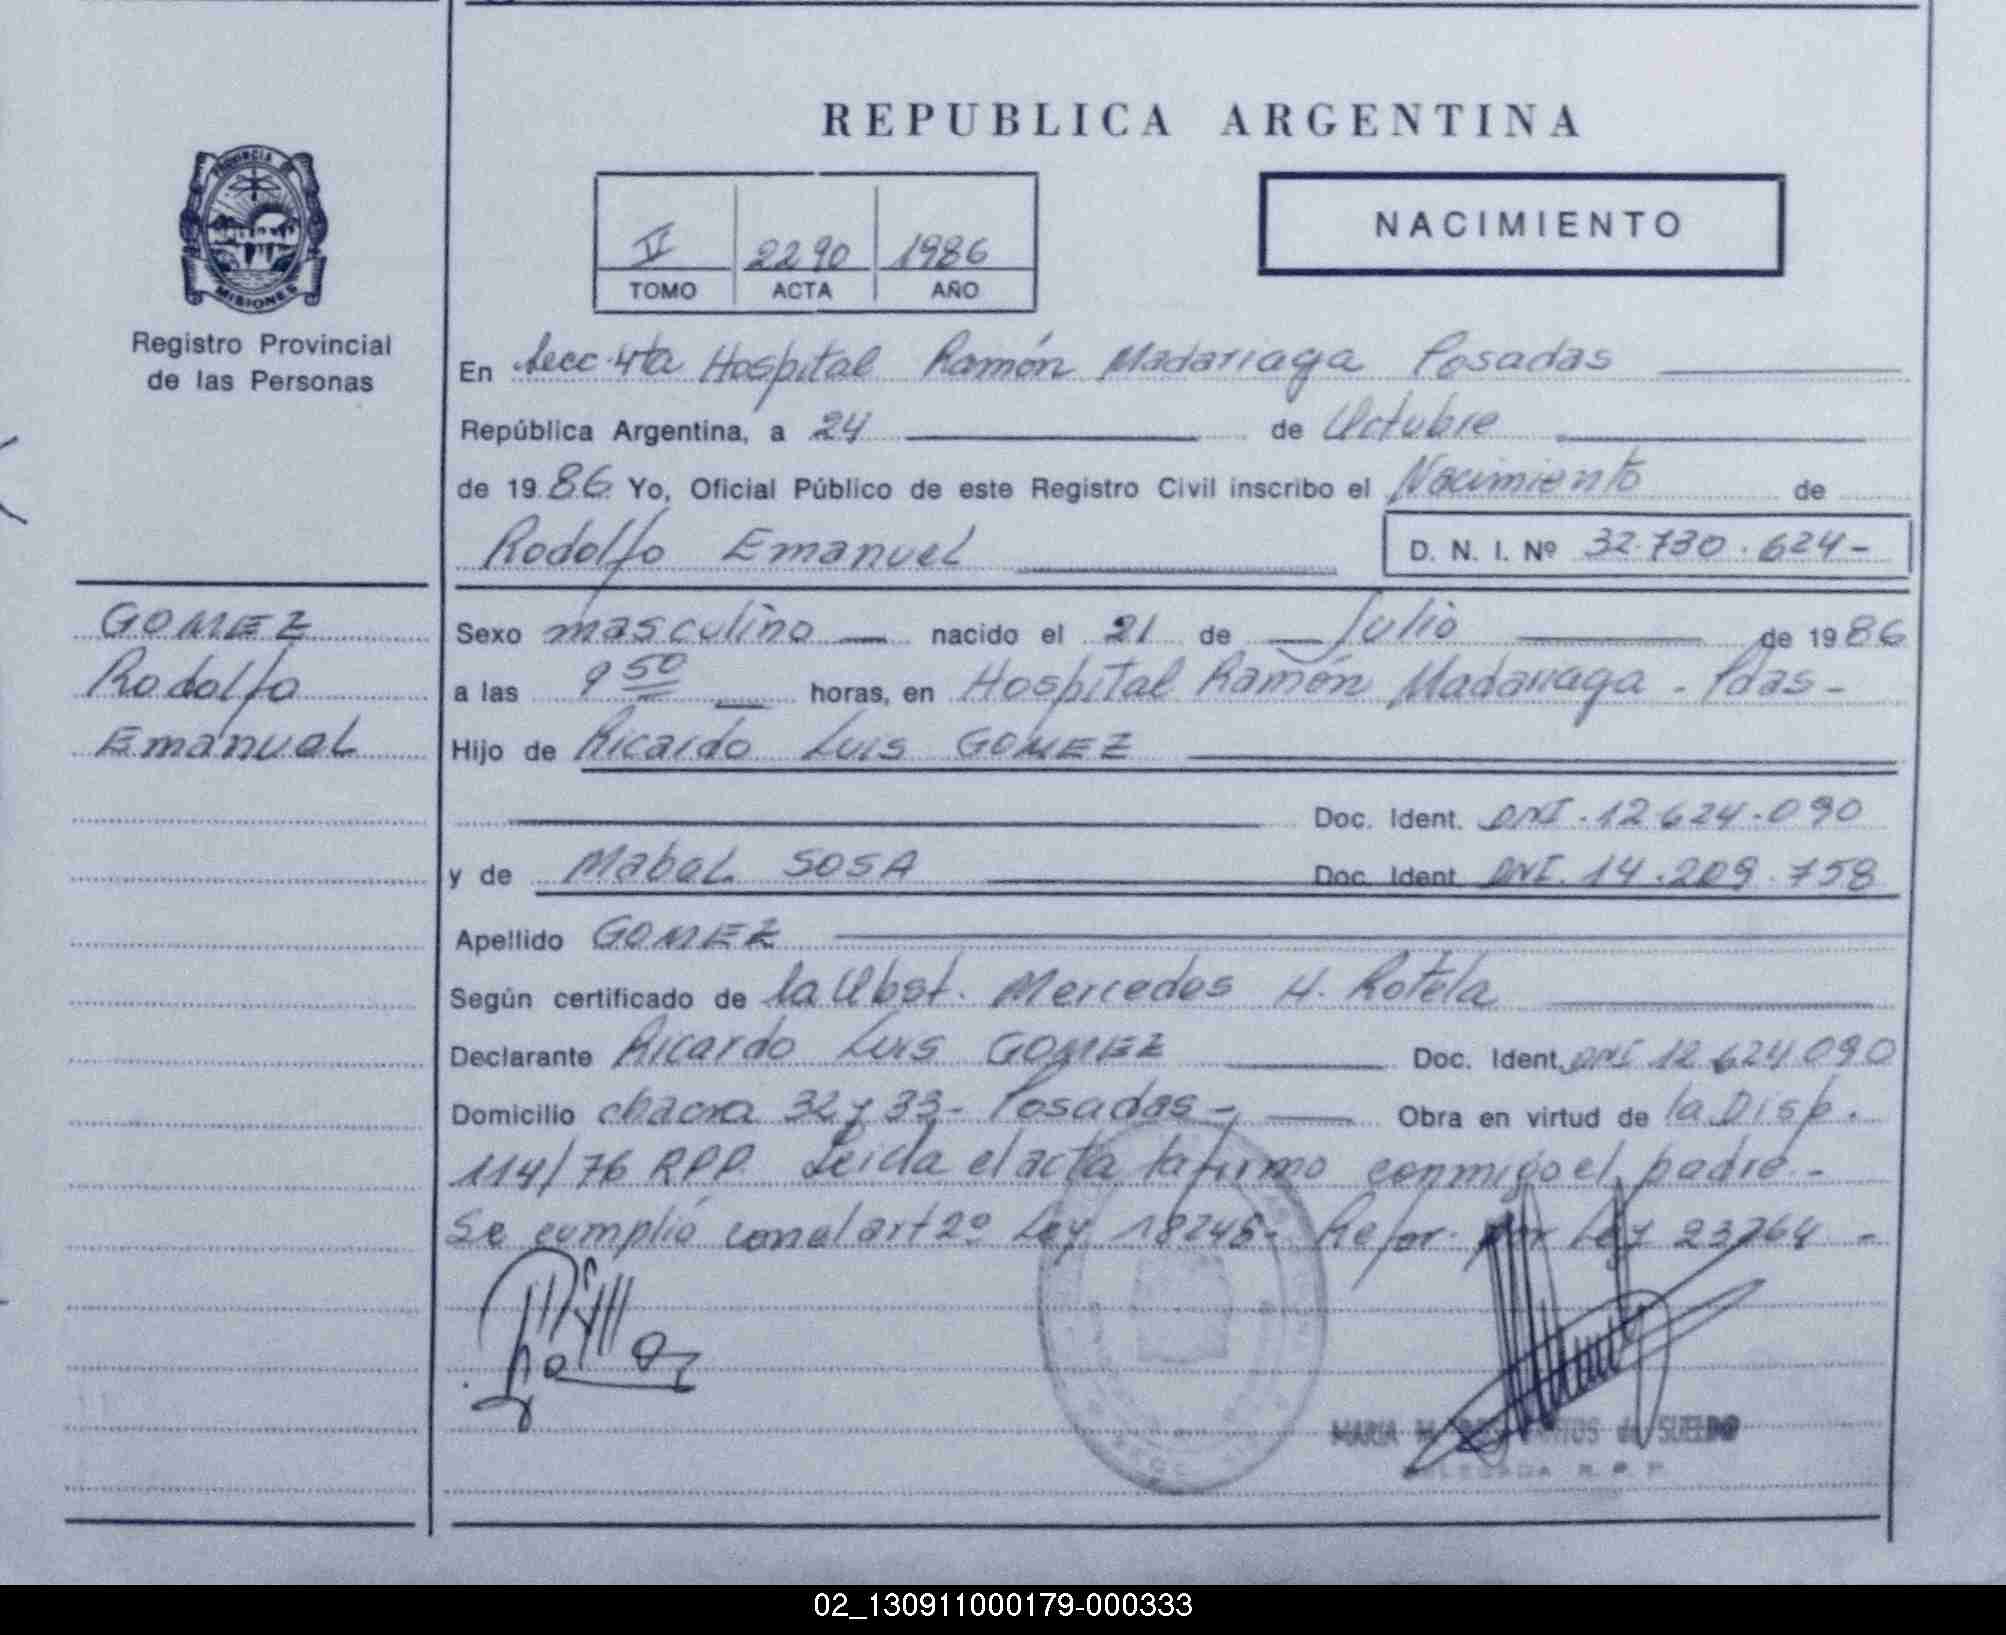 REPUBLICA ARGENTINA
PROVINCIA DE
MISIONES
Registro Provincial
de las Personas
V 2290 1986
TOMO ACTA AÑO
NACIMIENTO
En Secc. 4ta Hospital Ramón Madariaga Posadas
República Argentina, a 24 de Octubre
de 1986 Yo, Oficial Público de este Registro Civil inscribo el Nacimiento de
Rodolfo Emanuel D. N. I. Nº 32.730.624-
GOMEZ
Rodolfo
Emanuel
Sexo masculino nacido el 21 de Julio de 1986
a las 9 50 horas, en Hospital Ramón Madariaga - Pdas-
Hijo de Ricardo Luis GOMEZ
Doc. Ident. DNI. 12.624.090
y de Mabel SOSA Doc. Ident DNI. 14.209.758
Apellido GOMEZ
Según certificado de la Obst. Mercedes H. Rotela
Declarante Ricardo Luis GOMEZ Doc. Ident. DNI 12.624.090
Domicilio chacra 32 y 33- Posadas-, Obra en virtud de la Disp.
114/76 RPP. Leida el acta la firmo conmigo el padre.-
Se cumplió con el art 2º Ley 18248- Refor. por Ley 23264 -
MARIA M. DOS SANTOS de SUELDO
DELEGADA R. P. P.
02_130911000179-000333